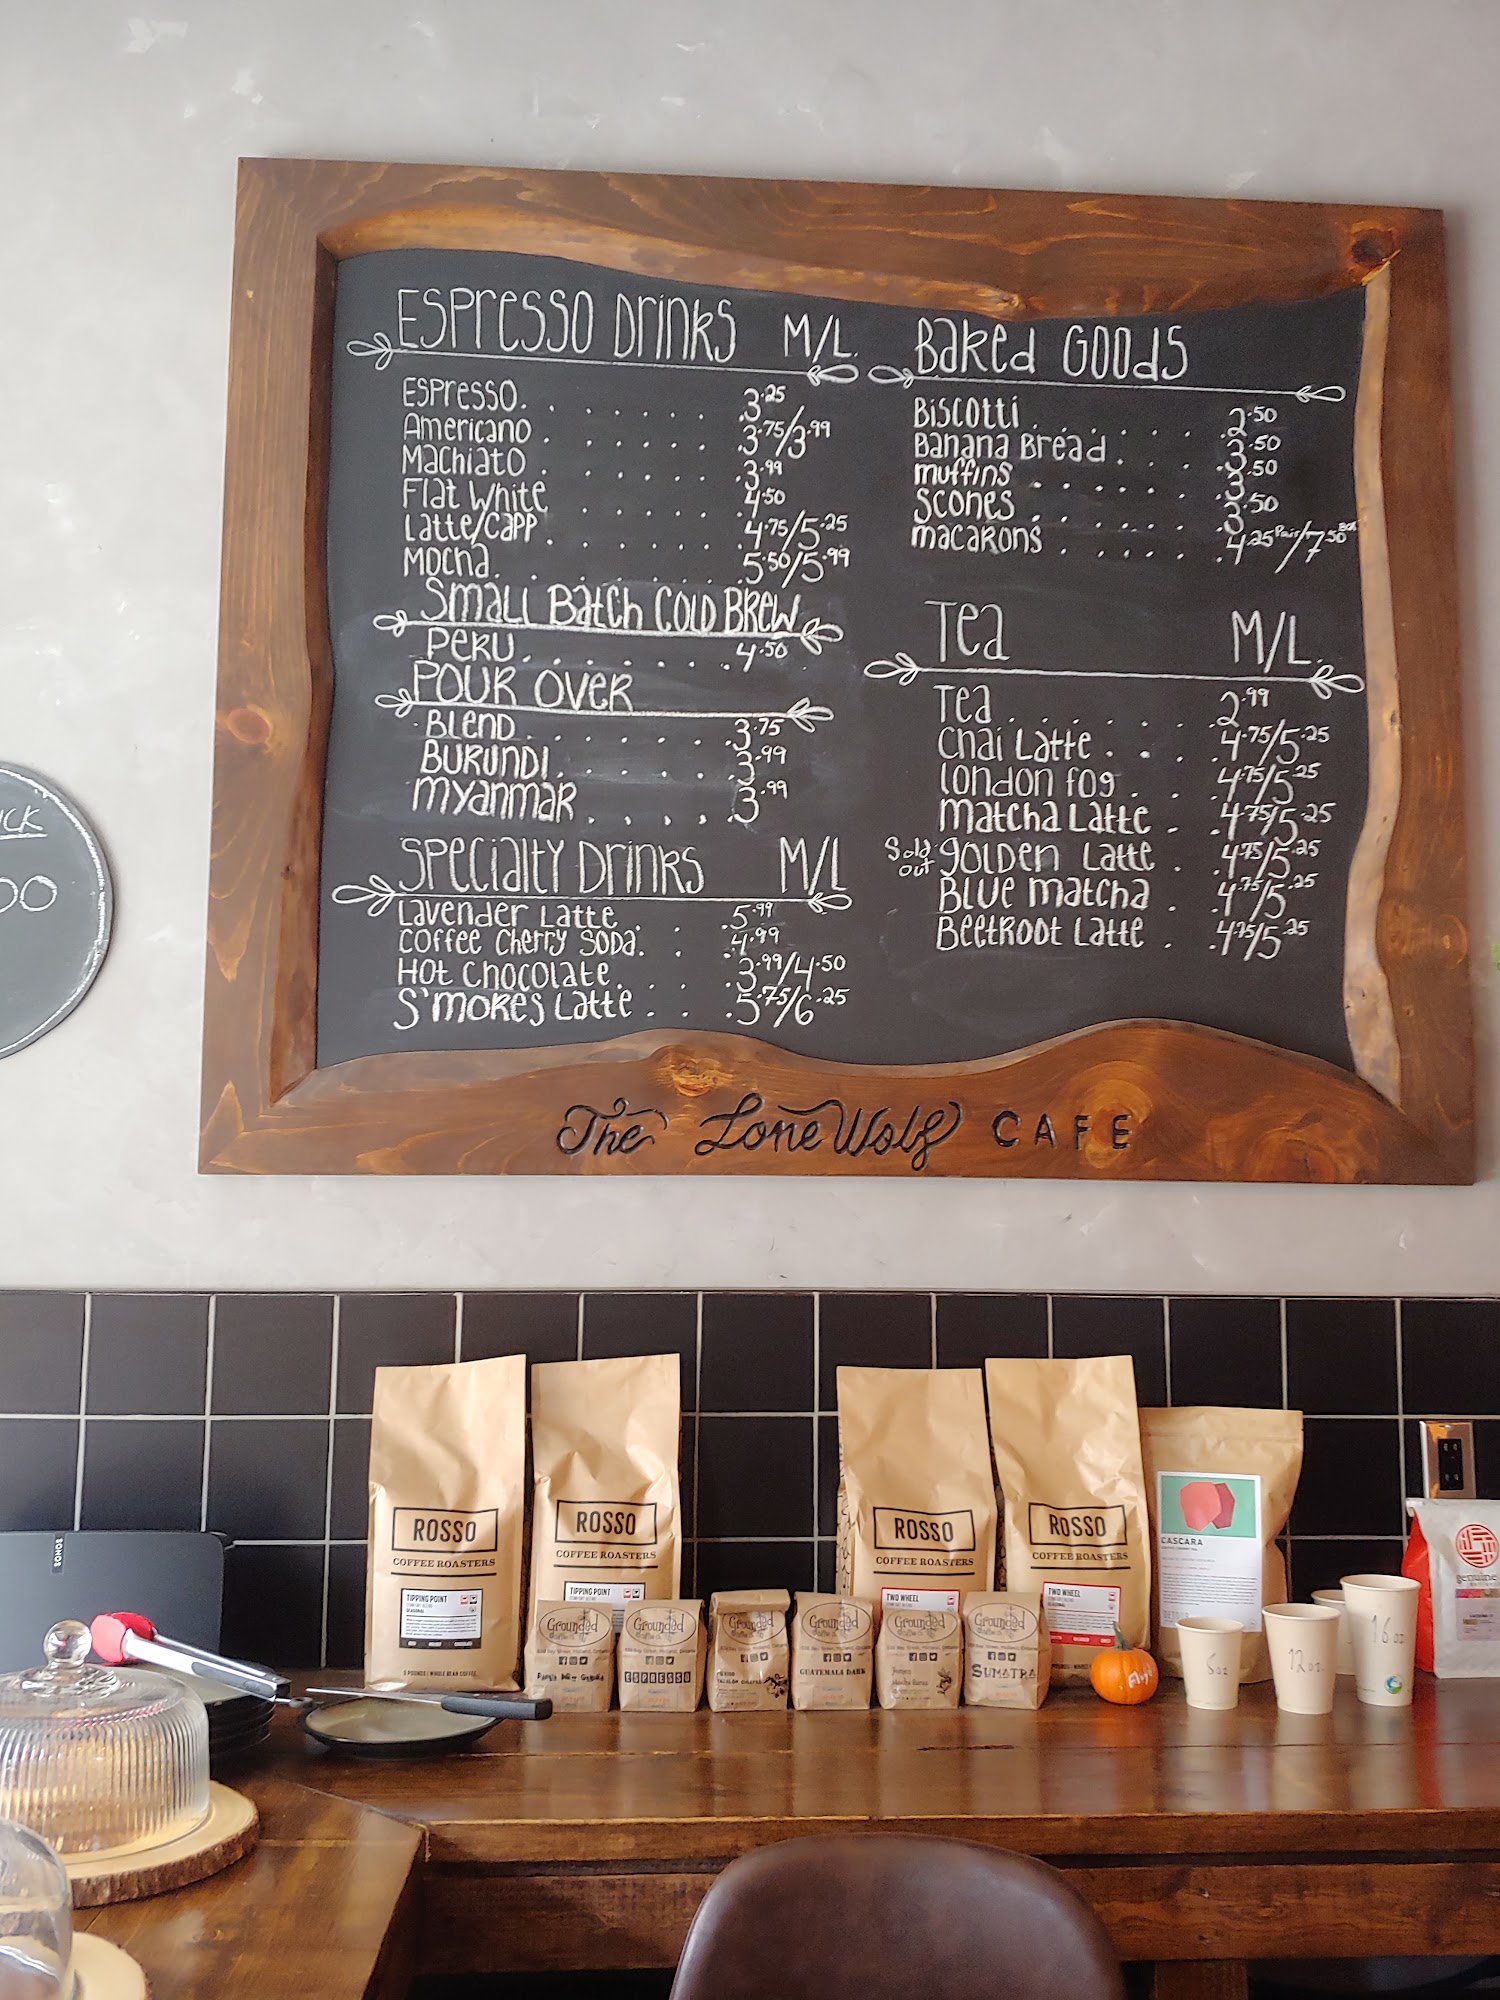 ESPRESSO DRINKS M/L.
ESPRESSO. 3.25
Americano 3.75/3.99
MACHIATO 3.99
FLAT WHITE 4.50
LATTE/CAPP 4.75/5.25
MOCHA 5.50/5.99
SMALL BATCH COLD BREW
PERU 4.50
POUR OVER
BLEND 3.75
BURUNDI 3.99
MYANMAR 3.99
SPECIALTY DRINKS M/L
LAVENDER LATTE 5.99
COFFEE CHERRY SODA. 4.99
HOT CHOCOLATE 3.99/4.50
S'MORES LATTE 5.75/6.25
BAKED GOODS
BISCOTTI 2.50
BANANA BREAD 3.50
MUFFINS 3.50
SCONES 3.50
MACARONS 4.25 Pair/7.50
TEA M/L.
TEA 2.99
CHAI LATTE 4.75/5.25
LONDON FOG 4.75/5.25
MATCHA LATTE 4.75/5.25
Sold out GOLDEN LATTE 4.75/5.25
BLUE MATCHA 4.75/5.25
BEETROOT LATTE 4.75/5.25
The Lone Wolf CAFE
UCK
00
SONOS
ROSSO
COFFEE ROASTERS
TIPPING POINT
5 POUNDS | WHOLE BEAN COFFEE
ROSSO
COFFEE ROASTERS
TIPPING POINT
ROSSO
COFFEE ROASTERS
TWO WHEEL
ROSSO
COFFEE ROASTERS
TWO WHEEL
CASCARA
genuine
Grounded
Grounded
ESPRESSO
Grounded
Grounded
GUATEMALA DARK
Grounded
Grounded
SUMATRA
12 oz.
16 oz